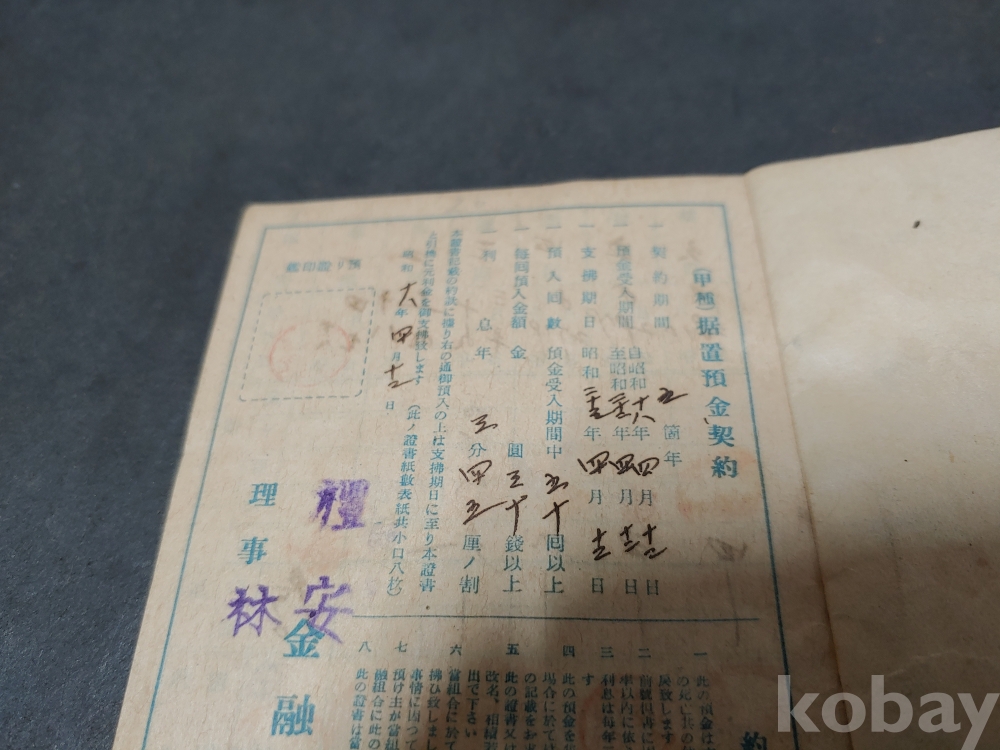 (甲種)据置預金契約
一 契約期間 五箇年
一 預金受入期間 自昭和十八年四月十二日
至昭和二三年四月十二日
一 支拂期日 昭和二三年四月十三日
一 預入回數 預金受入期間中五十回以上
一 每回預入金額 金 圓三十錢以上
一 利息 年三分四五厘ノ割
本證書記載の約款に據り右の通御預入の上は支拂期日に至り本證書
と引換に元利金を御支拂致します (此ノ證書紙數表紙共小口八枚)
昭和十八年四月十二日
預り證印鑑
禮安金融
理事 林
約
一 此の預金は
二
三
す
四 此の預金を
場合に於ては
の記載をお
五 此の證書又は
改名、相續
出で下さい
六 當組合に於て
拂ひ致しま
七 事情に因つて
預け主が當組
融組合に此の
八 此の證書は當
kobay